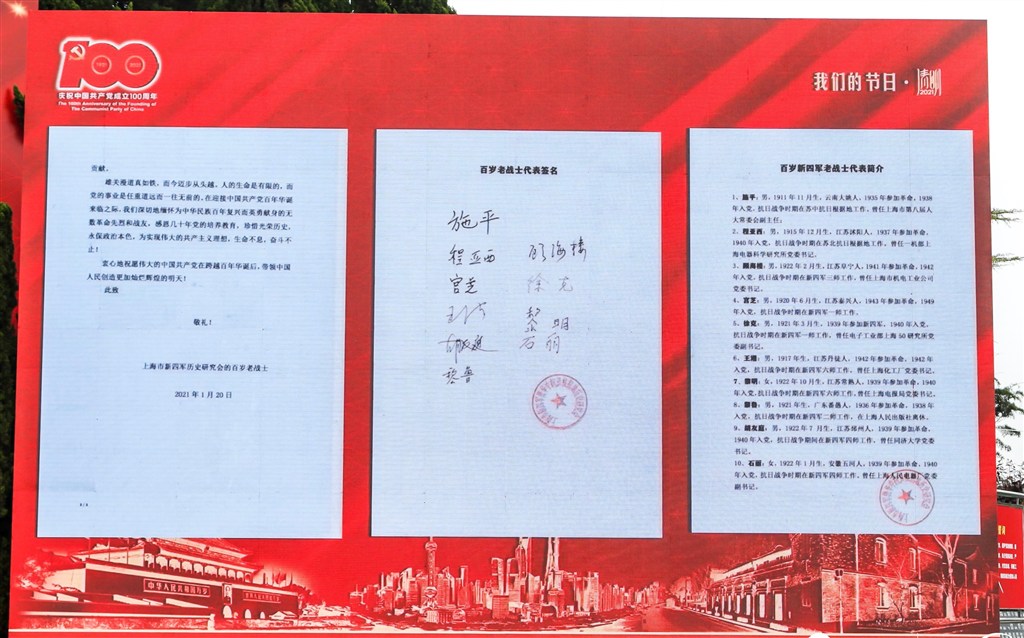 100
1921
2021
庆祝中国共产党成立100周年
The 100th Anniversary of the Founding of
The Communist Party of China
我们的节日·清明
2021
贡献。
雄关漫道真如铁，而今迈步从头越。人的生命是有限的，而
党的事业是任重道远而一往无前的。在迎接中国共产党百年华诞
来临之际，我们深切地缅怀为中华民族百年复兴而英勇献身的无
数革命先烈和战友，感恩几十年党的培养教育，珍惜光荣历史，
永葆政治本色，为实现伟大的共产主义理想，生命不息，奋斗不
止！
衷心地祝愿伟大的中国共产党在跨越百年华诞后，带领中国
人民创造更加灿烂辉煌的明天！
此致
敬礼！
上海市新四军历史研究会的百岁老战士
2021年1月20日
百岁老战士代表签名
施平
程亚西 顾海楼
宫芝 徐克
王港 黎明
胡友庭 石丽
黎鲁
百岁新四军老战士代表简介
1、施平：男，1911年11月生，云南大姚人，1935年参加革命，1938
年入党，抗日战争时期在苏中抗日根据地工作。曾任上海市第八届人
大常委会副主任；
2、程亚西：男，1915年12月生，江苏沭阳人，1937年参加革命，
1940年入党，抗日战争时期在苏北抗日根据地工作。曾任一机部上
海电器科学研究所党委书记。
3、顾海楼：男，1922年2月生，江苏阜宁人，1941年参加革命，1942
年入党，抗日战争时期在新四军三师工作。曾任上海市机电工业公司
党委书记。
4、宫芝：男，1920年6月生，江苏泰兴人，1943年参加革命，1949
年入党，抗日战争时期在新四军一师工作。
5、徐克：男，1921年3月生，1939年参加新四军，1940年入党，
抗日战争时期在新四军一师工作，曾任电子工业部上海50研究所党
委副书记。
6、王港：男，1917年生，江苏丹徒人，1942年参加革命，1942年
入党，抗日战争时期在新四军六师工作，曾任上海化工厂党委书记。
7、黎明：女，1922年10月生，江苏常熟人，1939年参加革命，1940
年入党，抗日战争时期在新四军六师工作，曾任上海电报局党委书记。
8、黎鲁：男，1921年生，广东番禺人，1936年参加革命，1938年
入党，抗日战争时期在新四军二师工作，在上海人民出版社离休。
9、胡友庭：男，1922年7月生，江苏邳州人，1939年参加革命，
1940年入党，抗日战争期间在新四军四师工作，曾任同济大学党委
书记。
10、石丽：女，1922年1月生，安徽五河人，1939年参加革命，1940
年入党，抗日战争时期在新四军四师工作。曾任上海人民电器厂党委
副书记。
中华人民共和国万岁